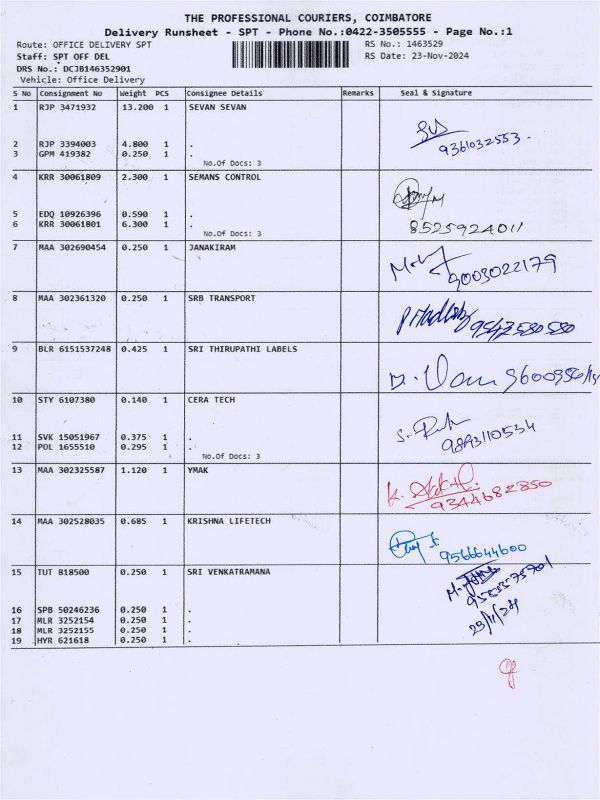 THE PROFESSIONAL COURIERS, COIMBATORE
Delivery Runsheet - SPT - Phone No.:0422-3505555 - Page No.:1
Route: OFFICE DELIVERY SPT RS No.: 1463529
Staff: SPT OFF DEL RS Date: 23-Nov-2024
DRS No.: DCJB146352901
Vehicle: Office Delivery
S No Consignment No Weight PCS Consignee Details Remarks Seal & Signature
1 RJP 3471932 13.200 1 SEVAN SEVAN
9361032553.
2 RJP 3394003 4.800 1 .
3 GPM 419382 0.250 1 .
No.Of Docs: 3
4 KRR 30061809 2.300 1 SEMANS CONTROL
5 EDQ 10926396 0.590 1 .
6 KRR 30061801 6.300 1 .
8525924011
No.Of Docs: 3
7 MAA 302690454 0.250 1 JANAKIRAM
9003022179
8 MAA 302361320 0.250 1 SRB TRANSPORT
9543580580
9 BLR 6151537248 0.425 1 SRI THIRUPATHI LABELS
10 STY 6107380 0.140 1 CERA TECH
11 SVK 15051967 0.375 1 .
12 POL 1655510 0.295 1 .
9893110534
No.Of Docs: 3
13 MAA 302325587 1.120 1 YMAK
9344682850
14 MAA 302528035 0.685 1 KRISHNA LIFETECH
9566644600
15 TUT 818500 0.250 1 SRI VENKATRAMANA
16 SPB 50246236 0.250 1 .
17 MLR 3252154 0.250 1 .
18 MLR 3252155 0.250 1 .
19 HYR 621618 0.250 1 .